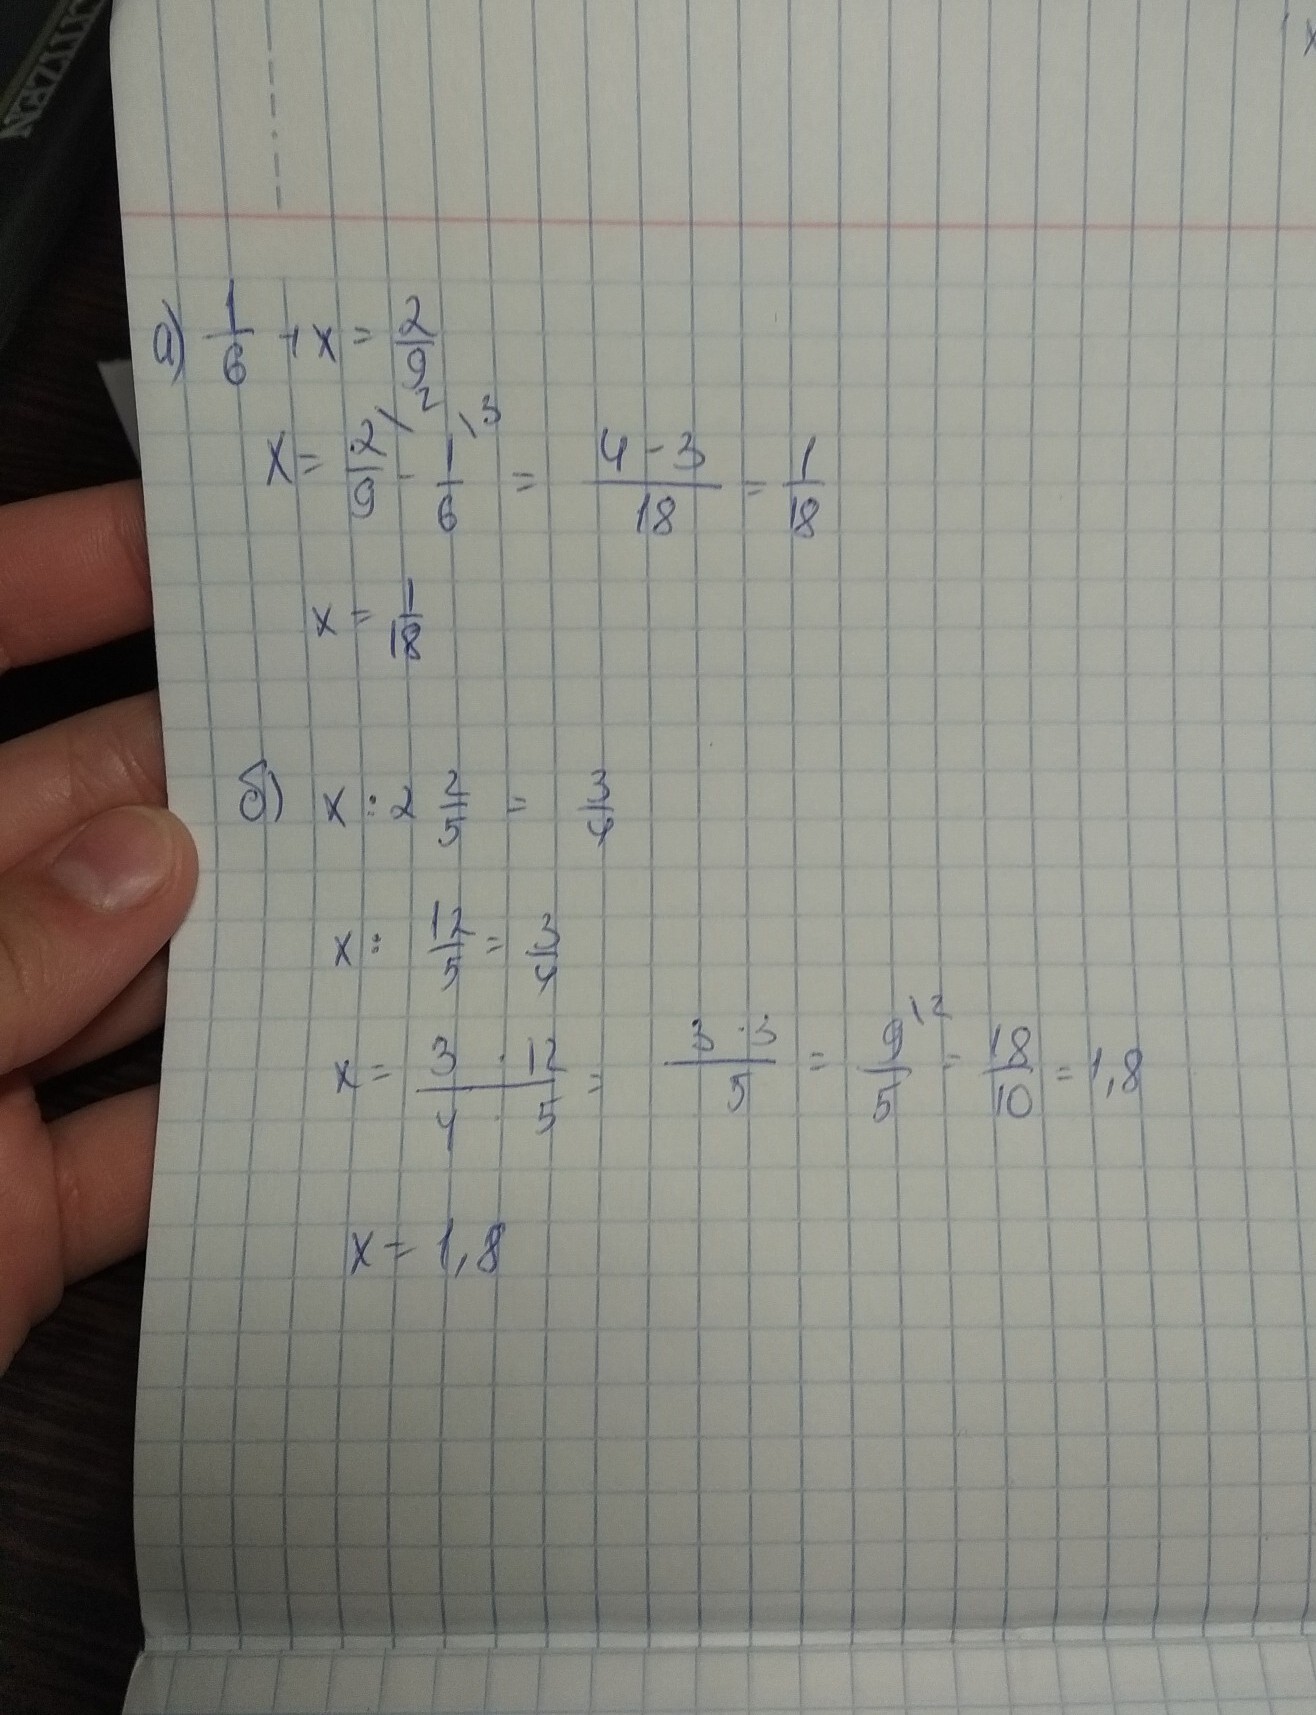 CITIZEN
x
а) 1/6 + x = 2/9
x = 2/9 \2 - 1/6 \3 = 4 - 3/18 = 1/18
x = 1/18
б) x : 2 2/5 = 3/4
x : 12/5 = 3/4
x = 3 · 12/4 · 5 = 3 · 3/5 = 9/5 \2 = 18/10 = 1,8
x = 1,8